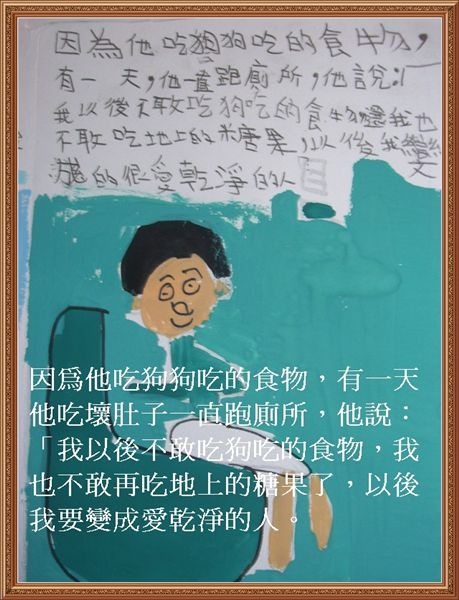 因為他吃狗狗吃的食物，
有一天，他一直跑廁所，他說：
我以後不敢吃狗吃的食物還我也
不敢吃地上的糖果，以後我變
的很愛乾淨的人
因爲他吃狗狗吃的食物，有一天
他吃壞肚子一直跑廁所，他說：
「我以後不敢吃狗吃的食物，我
也不敢再吃地上的糖果了，以後
我要變成愛乾淨的人。